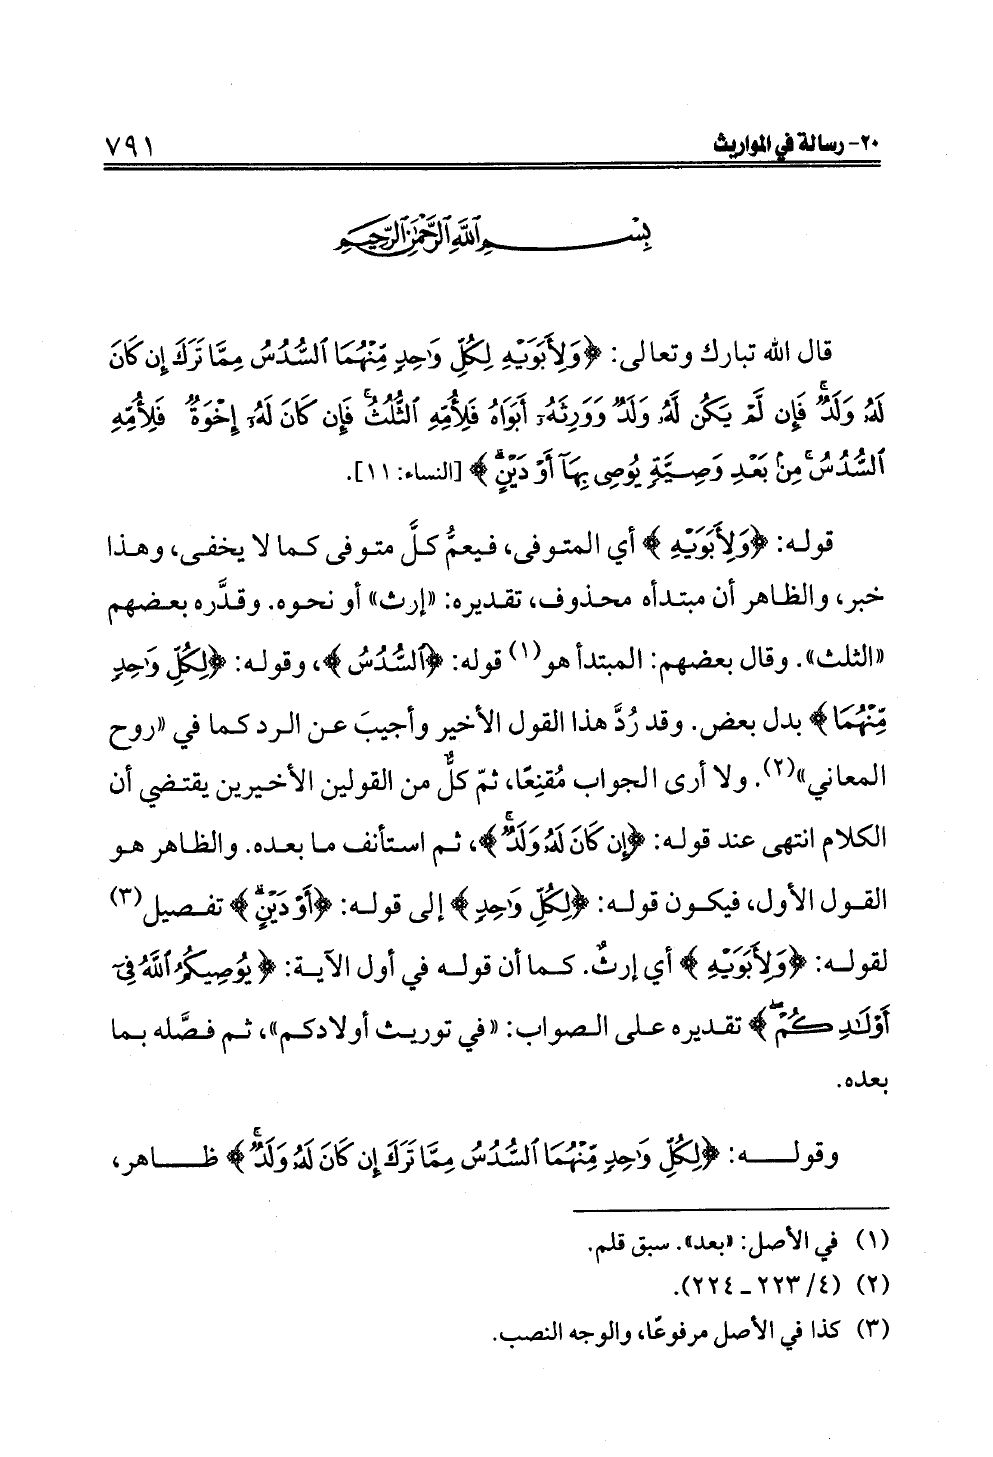 ٢٠- رسالة في المواريث ٧٩١
بِسْمِ اللَّهِ الرَّحْمَٰنِ الرَّحِيمِ
قال الله تبارك وتعالى: ﴿وَلِأَبَوَيْهِ لِكُلِّ وَٰحِدٍ مِّنْهُمَا ٱلسُّدُسُ مِمَّا تَرَكَ إِن كَانَ
لَهُۥ وَلَدٌ ۚ فَإِن لَّمْ يَكُن لَّهُۥ وَلَدٌ وَوَرِثَهُۥٓ أَبَوَاهُ فَلِأُمِّهِ ٱلثُّلُثُ ۚ فَإِن كَانَ لَهُۥٓ إِخْوَةٌ فَلِأُمِّهِ
ٱلسُّدُسُ ۚ مِنۢ بَعْدِ وَصِيَّةٍ يُوصِى بِهَآ أَوْ دَيْنٍ ۗ﴾ [النساء: ١١].
قوله: ﴿وَلِأَبَوَيْهِ﴾ أي المتوفى، فيعمُّ كلَّ متوفى كما لا يخفى، وهذا
خبر، والظاهر أن مبتدأه محذوف، تقديره: «إرث» أو نحوه. وقدَّره بعضهم
«الثلث». وقال بعضهم: المبتدأ هو(١) قوله: ﴿ٱلسُّدُسُ﴾، وقوله: ﴿لِكُلِّ وَٰحِدٍ
مِّنْهُمَا﴾ بدل بعض. وقد رُدَّ هذا القول الأخير وأجيبَ عن الرد كما في «روح
المعاني»(٢). ولا أرى الجواب مُقنِعًا، ثمّ كلٌّ من القولين الأخيرين يقتضي أن
الكلام انتهى عند قوله: ﴿إِن كَانَ لَهُۥ وَلَدٌ ۚ﴾، ثم استأنف ما بعده. والظاهر هو
القول الأول، فيكون قوله: ﴿لِكُلِّ وَٰحِدٍ﴾ إلى قوله: ﴿أَوْ دَيْنٍ ۗ﴾ تفصيل(٣)
لقوله: ﴿وَلِأَبَوَيْهِ﴾ أي إرثٌ. كما أن قوله في أول الآية: ﴿يُوصِيكُمُ ٱللَّهُ فِىٓ
أَوْلَٰدِكُمْ ۖ﴾ تقديره على الصواب: «في توريث أولادكم»، ثم فصَّله بما
بعده.
وقوله: ﴿لِكُلِّ وَٰحِدٍ مِّنْهُمَا ٱلسُّدُسُ مِمَّا تَرَكَ إِن كَانَ لَهُۥ وَلَدٌ ۚ﴾ ظاهر،
(١) في الأصل: «بعد». سبق قلم.
(٢) (٤/ ٢٢٣ ـ ٢٢٤).
(٣) كذا في الأصل مرفوعًا، والوجه النصب.